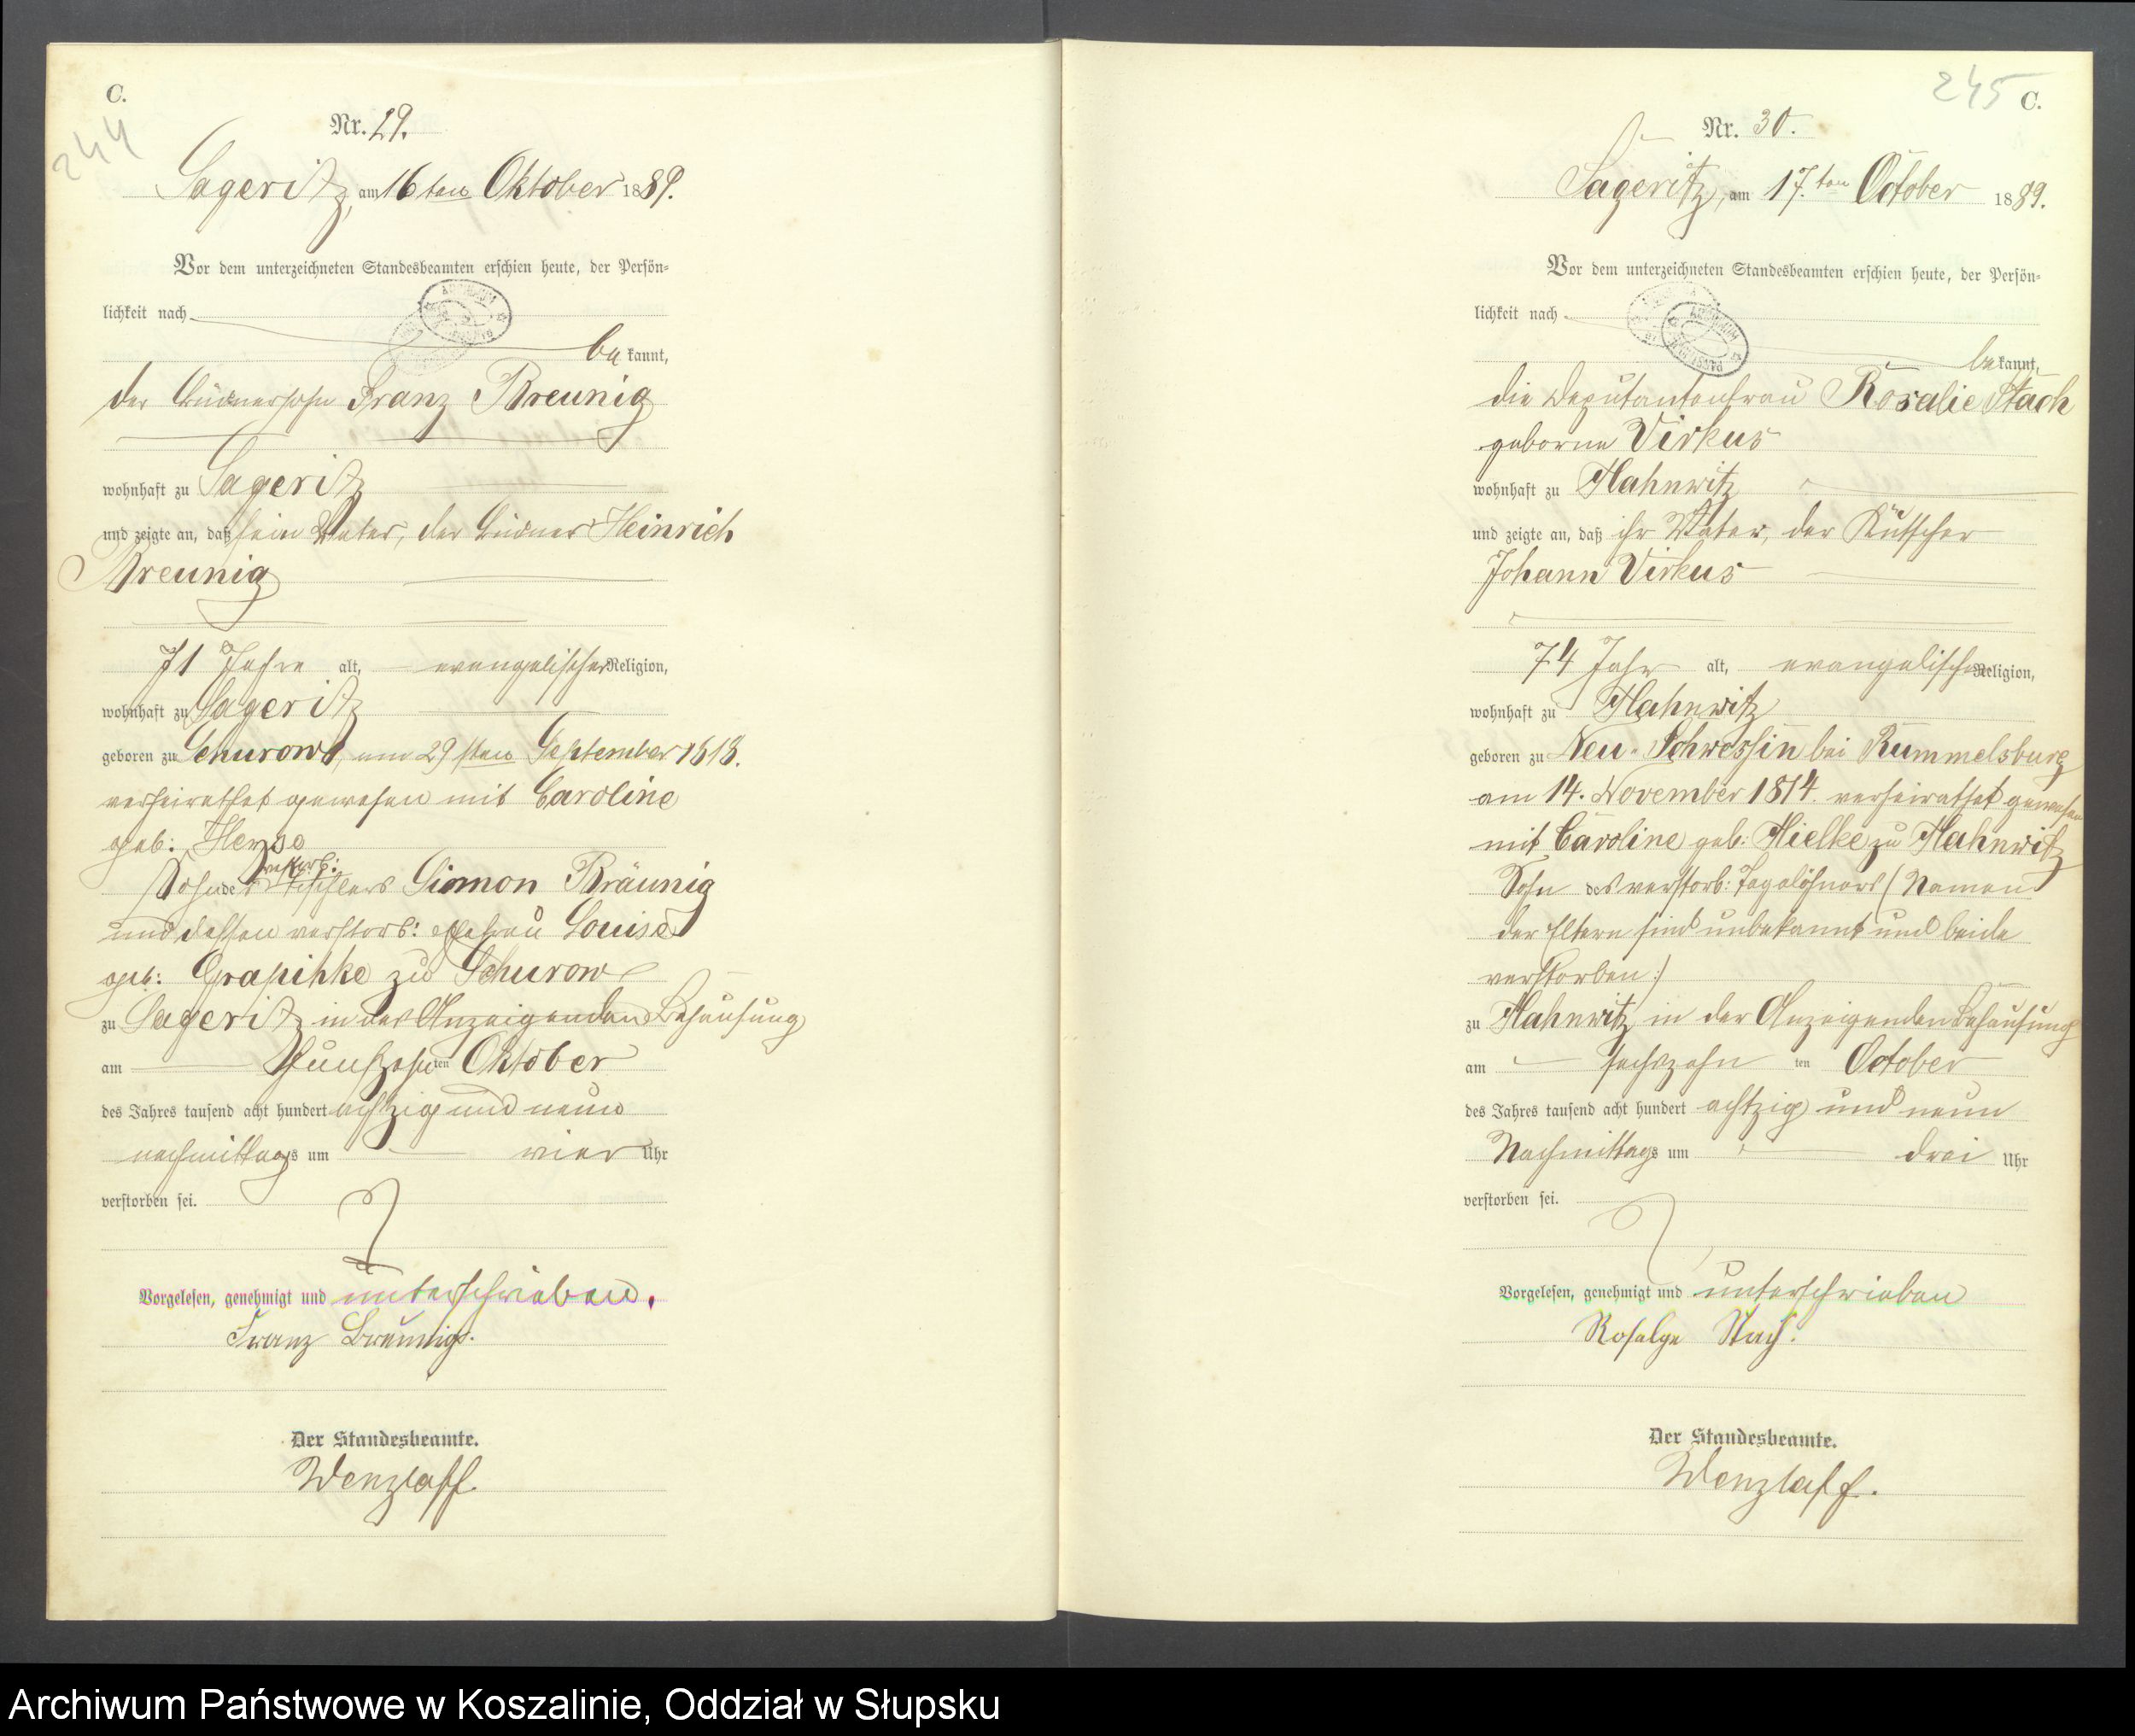 C.
244
Nr. 29.
Sageritz, am 16ten Oktober 1889.
Vor dem unterzeichneten Standesbeamten erschien heute, der Persön=
lichkeit nach
be kannt,
der Büdnersohn Franz Breunig
wohnhaft zu Sageritz
und zeigte an, daß sein Vater, der Büdner Heinrich
Breunig
71 Jahre alt, evangelischer Religion,
wohnhaft zu Sageritz
geboren zu Schurow, am 29sten September 1818.
verheirathet gewesen mit Caroline
geb:
verstorb:
Sohn des Tischlers Simon Bräunig
und dessen verstorb: Ehefrau Louise
geb: Grapihke zu Schurow
zu Sageritz in des Anzeigenden Behausung
am fünfzehnten Oktober
des Jahres tausend acht hundert achtzig und neun
nachmittags um vier Uhr
verstorben sei.
Vorgelesen, genehmigt und unterschrieben.
Franz Breunig.
Der Standesbeamte.
Wenzlaff.
245
C.
Nr. 30.
Sageritz, am 17.ten October 1889.
Vor dem unterzeichneten Standesbeamten erschien heute, der Persön=
lichkeit nach
bekannt,
die Deputantenfrau Rosalie Stach
geborne Virkus
wohnhaft zu Hahnwitz
und zeigte an, daß ihr Vater, der Kutscher
Johann Virkus
74 Jahr alt, evangelischer Religion,
wohnhaft zu Hahnwitz
geboren zu Neu-Schwessin bei Rummelsburg
am 14. November 1814. verheirathet gewesen
mit Caroline geb: Mielke zu Hahnwitz
Sohn des verstorb: Tagelöhners (Namen
der Eltern sind unbekannt und beide
verstorben:)
zu Hahnwitz in der Anzeigenden Behausung
am sechszehn ten October
des Jahres tausend acht hundert achtzig und neun
Nachmittags um drei Uhr
verstorben sei.
Vorgelesen, genehmigt und unterschrieben
Rosalye Stach.
Der Standesbeamte.
Wenzlaff.
Archiwum Państwowe w Koszalinie, Oddział w Słupsku